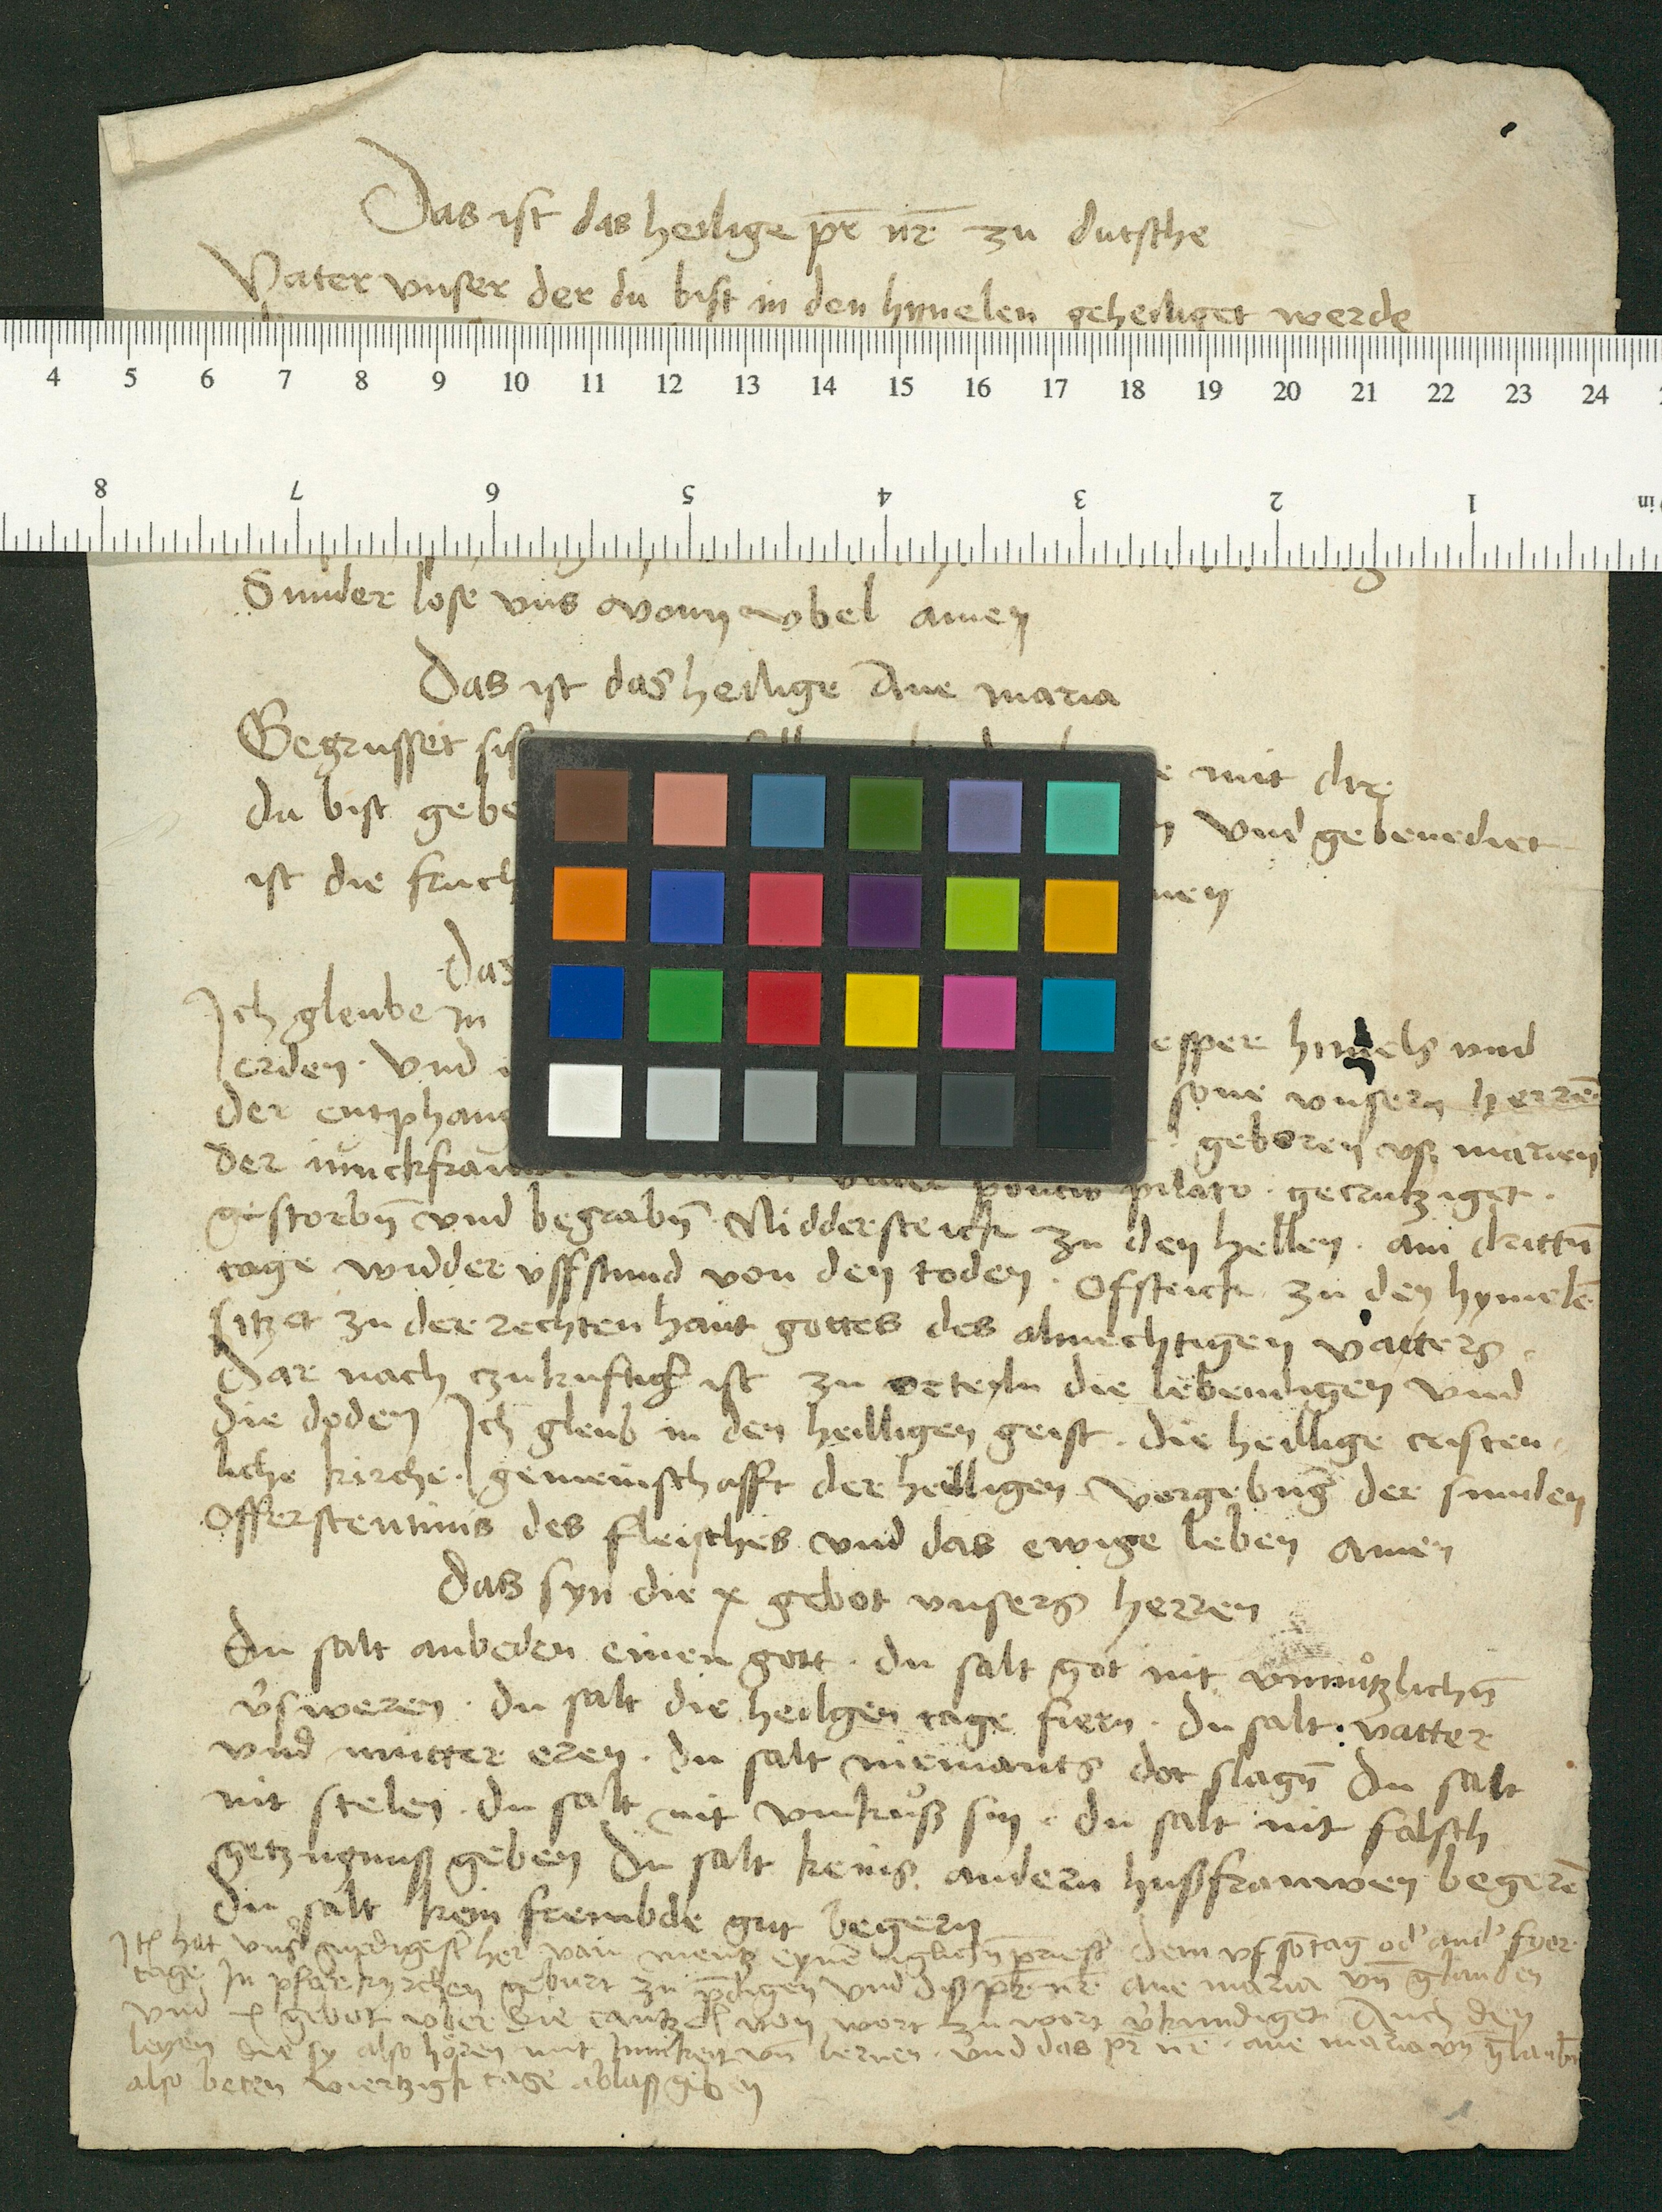 Das ist das heilige pr̄ nr̄ zu dutsche
Vater vnser der du bist in den hymelen geheiliget werde
4 5 6 7 8 9 10 11 12 13 14 15 16 17 18 19 20 21 22 23 24
8 7 6 5 4 3 2 1 in
Sunder lose vns vonn vbel amen
Das ist das heilige Aue maria
Gegrusset mit dir
du bist gebe vnd gebenediet
ist die fruch
Das
Ich gleube in hymels vnd
erden · vnd sone vnsern herrē
der entphang geboren vß marien
der iunckfrauwe pontio pilato · gecrutziget ·
gestorbn̄ vnd begrabn̄ · Niddersteick zu den hellen · am drittn̄
tage widder vffstund von den toden · Ofsteick zu den hymelē
sitzet zu der rechten hant gottes des almechtigen vatters
Dar nach czukuftig ist zu orteyln die lebendigen vnd
die doden Ich gleub in den heilligen geist · die heillige cristen
liche kirche · gemeinschafft der heilligen vergebūg der sunden
Offerstentnis des fleisches vnd das ewige leben amen
Das syn die x gebot vnsers herren
Du salt anbeden einen gott · du salt got nit vnnutzlichn̄
v̓sweren · du salt die heilgen tage fiern · du salt vatter
vnd mutter eren · du salt niemants dot slagn̄ Du salt
nit stelen · du salt nit vnkuß sin · du salt nit falsch
getzugnuß geben Du salt keins andern hußfrauwen begerē
Du salt kein frembde gut begern
Itē hat vns̓ gnedigest her von mentz eynē iglichn̄ priest̓ dem vf sōtag od̓ and̓ fyer
tage In pfarkyrchen geburt zu p̄digen vnd diß pr̄ nr̄ aue maria vn̄ glauben
vnd x gebot vber die cantzel von wort zu wort v̓kundiget Auch den
leyen die sy also horen mit Innikeit vn̄ lernen · vnd das pr̄ nr̄ · aue maria vn̄ glaubn̄
also beten viertzigk tage ablaß geben